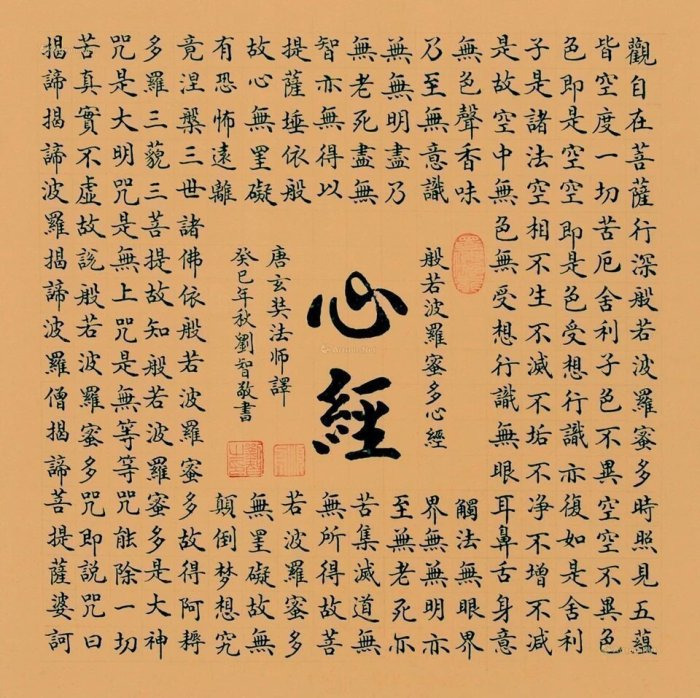 觀自在菩薩行深般若波羅蜜多時照見五蘊
皆空度一切苦厄舍利子色不異空空不異色
色即是空空即是色受想行識亦復如是舍利
子是諸法空相不生不滅不垢不净不增不減
是故空中無色無受想行識無眼耳鼻舌身意
無色聲香味
觸法無眼界
乃至無意識
界無無明亦
無無明盡乃
至無老死亦
無老死盡無
苦集滅道無
智亦無得以
無所得故菩
提薩埵依般
若波羅蜜多
故心無罣礙
無罣礙故無
有恐怖遠離
顛倒梦想究
竟涅槃三世諸佛依般若波羅蜜多故得阿耨
多羅三藐三菩提故知般若波羅蜜多是大神
咒是大明咒是無上咒是無等等咒能除一切
苦真實不虛故説般若波羅蜜多咒即説咒曰
揭諦揭諦波羅揭諦波羅僧揭諦菩提薩婆訶
般若波羅蜜多心經
心經
唐玄奘法师譯
癸巳年秋劉智敬書